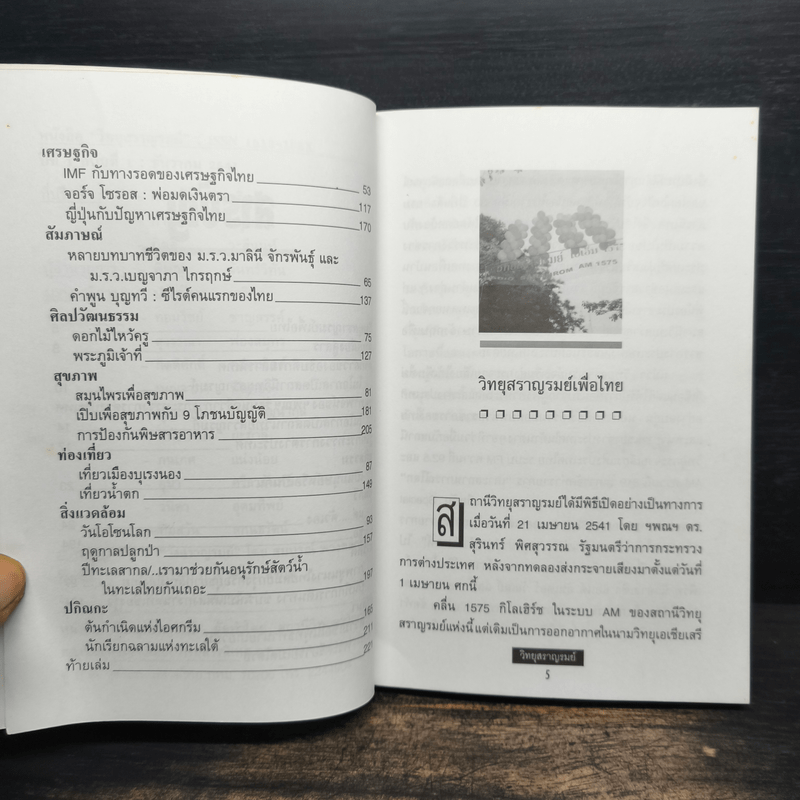 เศรษฐกิจ
IMF กับทางรอดของเศรษฐกิจไทย 53
จอร์จ โซรอส : พ่อมดเงินตรา 117
ญี่ปุ่นกับปัญหาเศรษฐกิจไทย 170
สัมภาษณ์
หลายบทบาทชีวิตของ ม.ร.ว.มาลินี จักรพันธุ์ และ
ม.ร.ว.เบญจาภา ไกรฤกษ์ 65
คำพูน บุญทวี : ซีไรต์คนแรกของไทย 137
ศิลปวัฒนธรรม
ดอกไม้ไหว้ครู 75
พระภูมิเจ้าที่ 127
สุขภาพ
สมุนไพรเพื่อสุขภาพ 81
เปิบเพื่อสุขภาพกับ 9 โภชนบัญญัติ 181
การป้องกันพิษสารอาหาร 205
ท่องเที่ยว
เที่ยวเมืองบุเรงนอง 87
เที่ยวน้ำตก 149
สิ่งแวดล้อม
วันโอโซนโลก 93
ฤดูกาลปลูกป่า 157
ปีทะเลสากล/..เรามาช่วยกันอนุรักษ์สัตว์น้ำ
ในทะเลไทยกันเถอะ 197
ปกิณกะ
ต้นกำเนิดแห่งไอศกรีม 165
นักเรียกฉลามแห่งทะเลใต้ 211
ท้ายเล่ม 221
AM 1575
วิทยุสราญรมย์เพื่อไทย
สถานีวิทยุสราญรมย์ได้มีพิธีเปิดอย่างเป็นทางการ
เมื่อวันที่ 21 เมษายน 2541 โดย ฯพณฯ ดร.
สุรินทร์ พิศสุวรรณ รัฐมนตรีว่าการกระทรวง
การต่างประเทศ หลังจากทดลองส่งกระจายเสียงมาตั้งแต่วันที่
1 เมษายน ศกนี้
คลื่น 1575 กิโลเฮิร์ซ ในระบบ AM ของสถานีวิทยุ
สราญรมย์แห่งนี้ แต่เดิมเป็นการออกอากาศในนามวิทยุเอเชียเสรี
วิทยุสราญรมย์
5